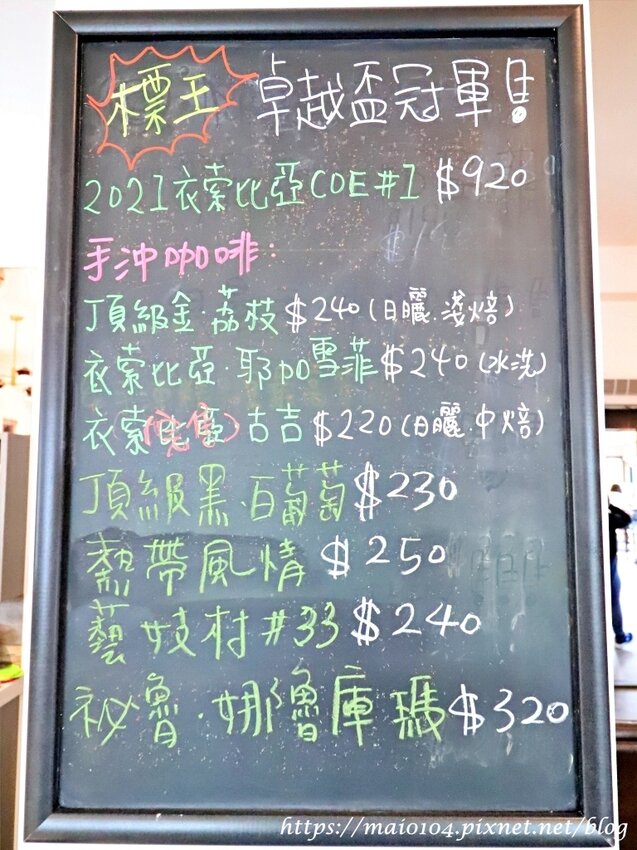 標王 卓越盃冠軍豆!
2021衣索比亞COE#1 $920
手沖咖啡
頂級金.荔枝$240(日曬.淺焙)
衣索比亞.耶加雪菲$240(水洗)
衣索比亞(完售)古吉$220(日曬.中焙)
頂級黑.白葡萄$230
熱帶風情 $250
藝妓村#33$240
祕魯.娜魯庫瑪$320
https://maio104.pixnet.net/blog